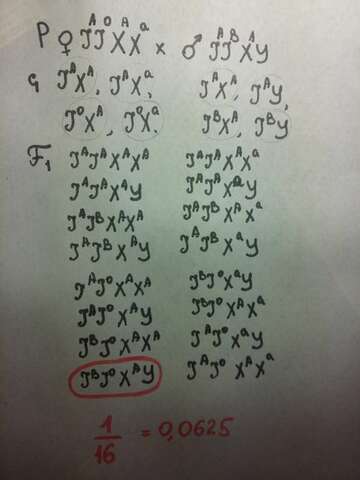 P ♀ JᴬJᴼXᴬXᵃ x ♂ JᴬJᴮXᴬY
G JᴬXᴬ, JᴬXᵃ, JᴬXᴬ, JᴬY,
JᴼXᴬ, JᴼXᵃ. JᴮXᴬ, JᴮY
F₁ JᴬJᴬXᴬXᴬ JᴬJᴬXᴬXᵃ
JᴬJᴬXᴬY JᴬJᴬXᵃY
JᴬJᴮXᴬXᴬ JᴬJᴮXᴬXᵃ
JᴬJᴮXᴬY JᴬJᴮXᵃY
JᴬJᴼXᴬXᴬ JᴮJᴼXᵃY
JᴬJᴼXᴬY JᴮJᴼXᴬXᵃ
JᴮJᴼXᴬXᴬ JᴬJᴼXᵃY
JᴮJᴼXᴬY JᴬJᴼ XᴬXᵃ
1/16 = 0,0625